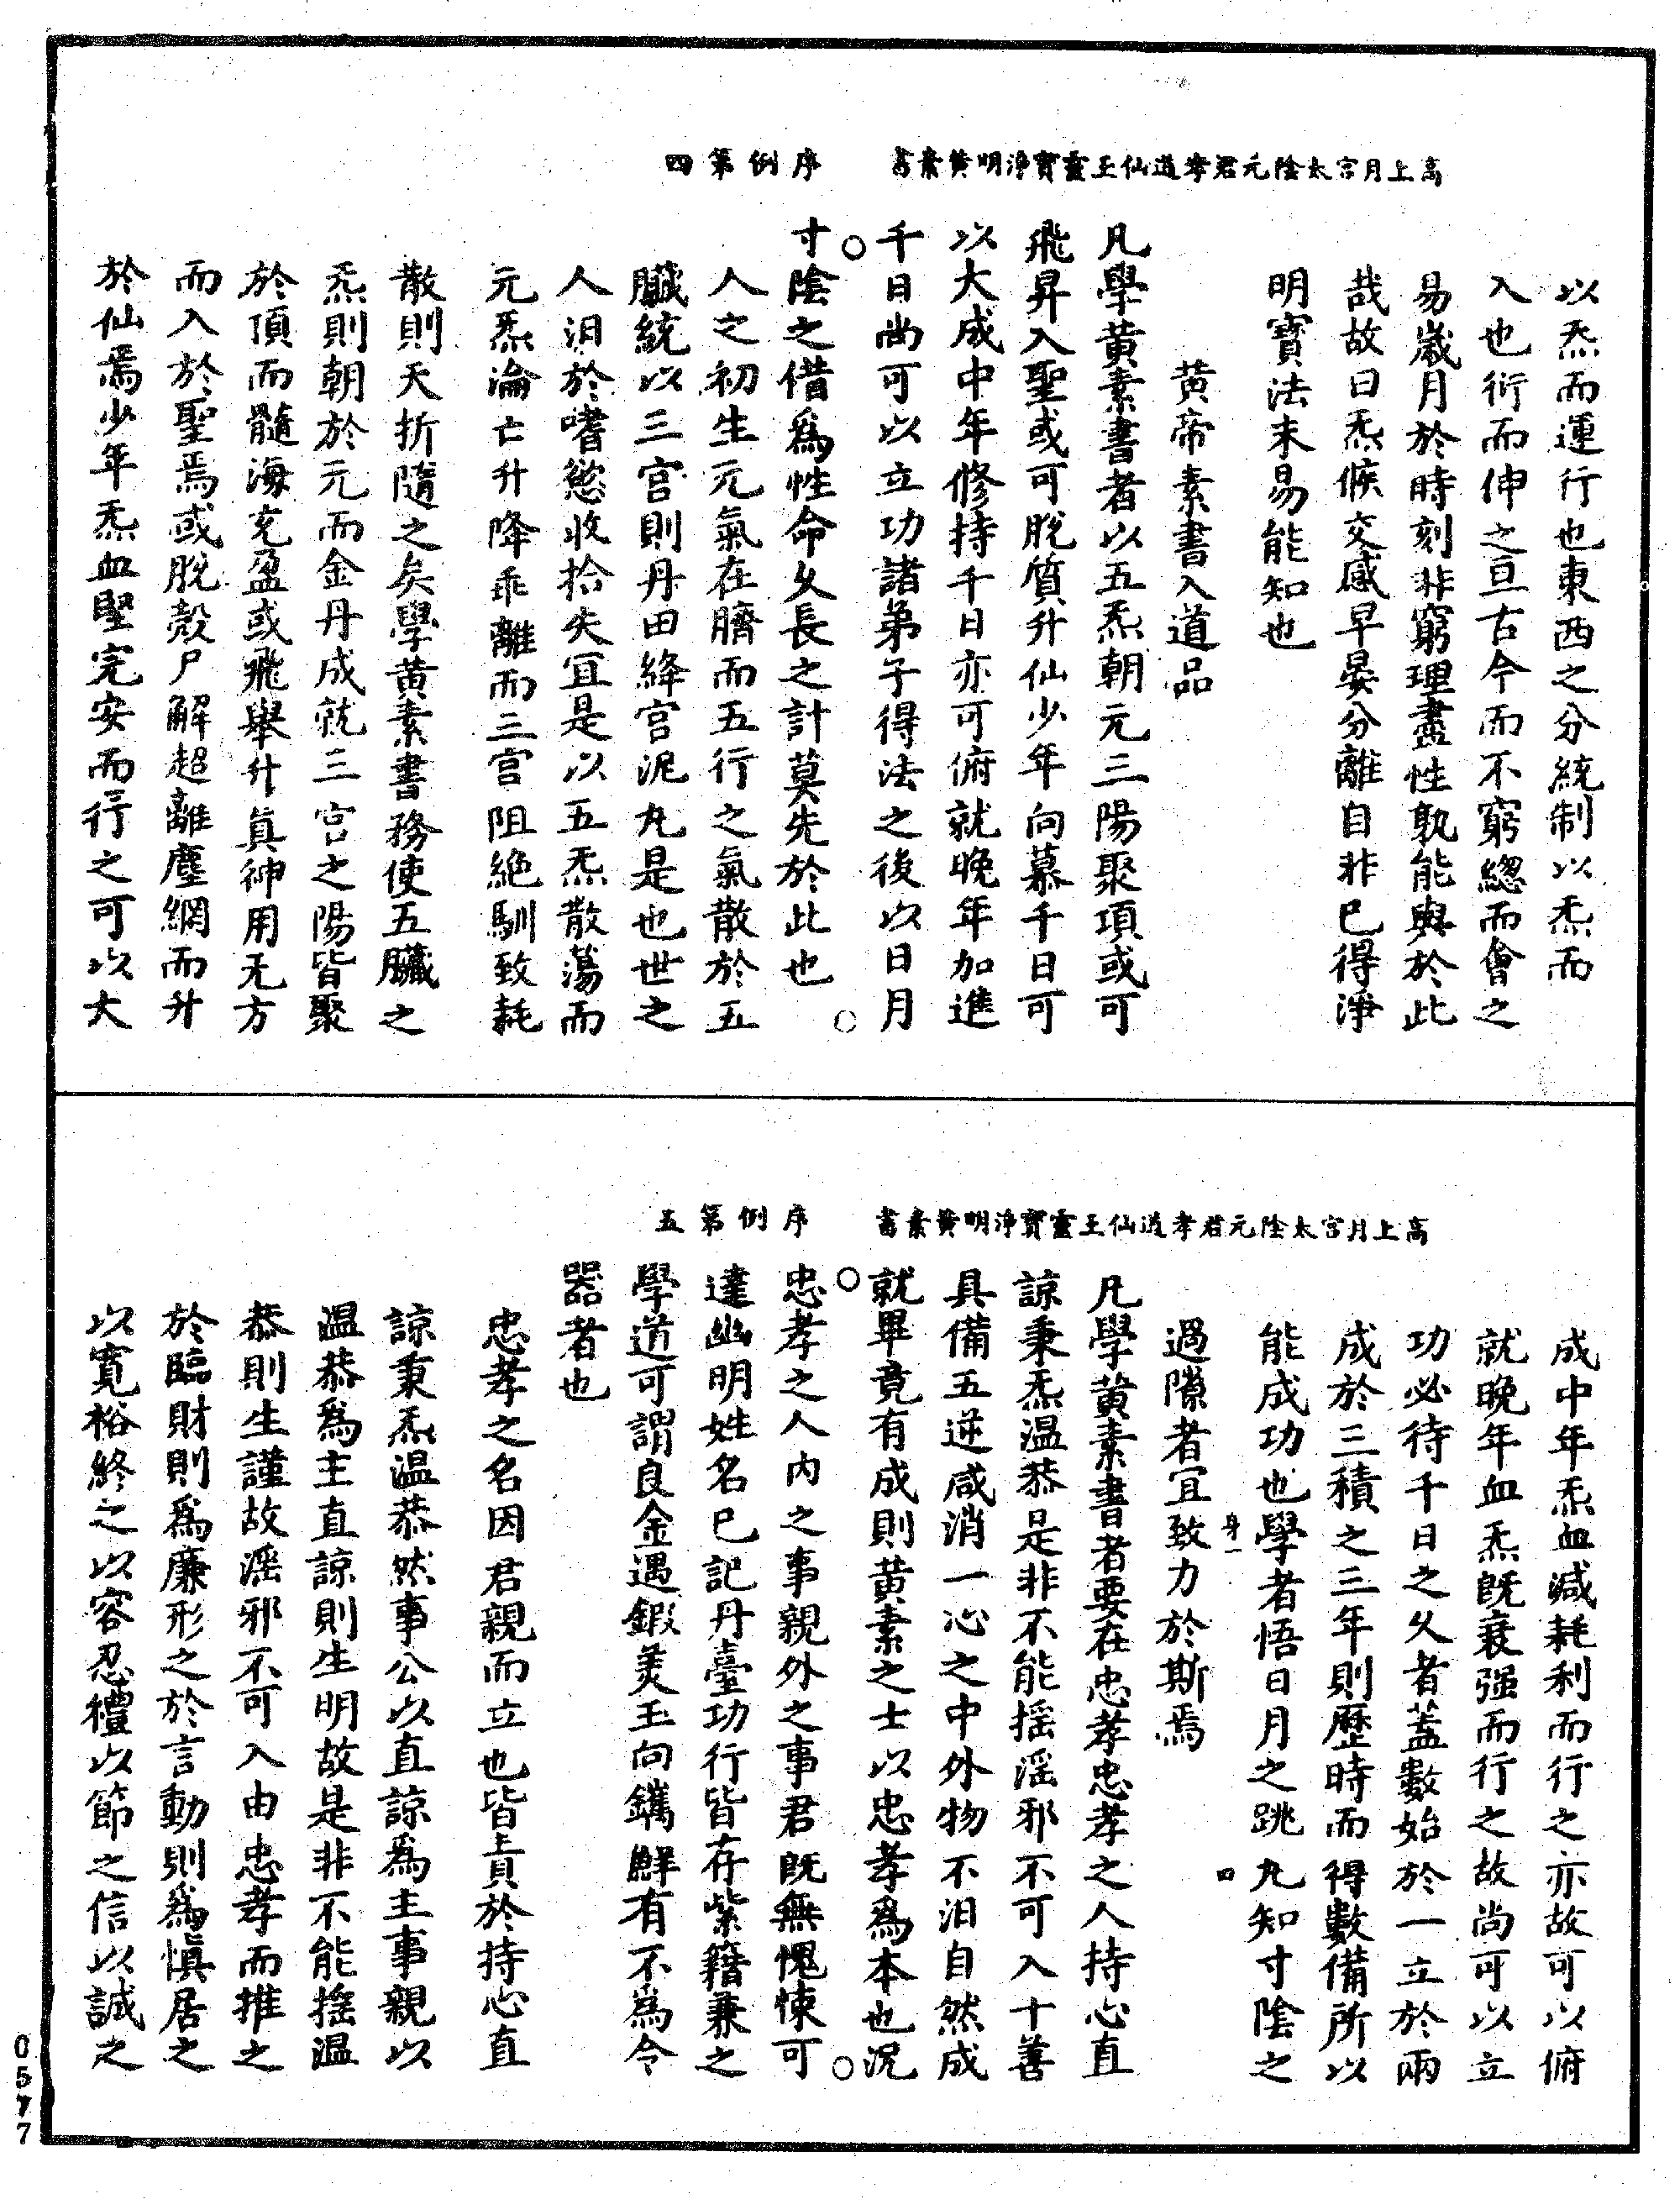 高上月宫太陰元君孝道仙王靈寶淨明黄素書　序例第四
以炁而運行也東西之分統制以炁而
入也衍而伸之亘古今而不窮緫而會之
易嵗月於時刻非窮理盡性孰能與於此
哉故曰炁候交感早晏分離自非已得淨
明寳法未易能知也
黄帝素書入道品
凡學黄素書者以五炁朝元三陽聚項或可
飛昇入聖或可脫質升仙少年向慕千日可
以大成中年修持千日亦可俯就晚年加進
千日尚可以立功諸弟子得法之後以日月
寸陰之借爲性命攵長之計莫先於此也
人之初生元氣在臍而五行之氣散於五
臟統以三宫則丹田絳宫泥丸是也世之
人汨於嗜慾收拾失宜是以五炁散蕩而
元炁淪亡升降乖離而三宫阻絶馴致耗
散則夭折隨之矣學黄素書務使五臟之
炁則朝於元而金丹成就三宫之陽皆聚
於頂而髓海充盈或飛舉升眞神用无方
而入於聖焉或脫殻尸解超離塵網而升
於仙焉少年炁血堅完安而行之可以大
高上月宫太陰元君孝道仙王靈寶淨明黄素書　序例第五
成中年炁血減耗利而行之亦故可以俯
就晚年血炁旣衰强而行之故尚可以立
功必待千日之乆者蓋數始於一立於兩
成於三積之三年則歷時而得數備所以
能成功也學者悟日月之跳丸知寸陰之
身一　四
過隙者宜致力於斯焉
凡學黄素書者要在忠孝忠孝之人持心直
諒秉炁温恭是非不能摇滛邪不可入十善
具備五逆咸消一心之中外物不汨自然成
就畢竟有成則黄素之士以忠孝爲本也况
忠孝之人内之事親外之事君旣無愧悚可
達幽明姓名已記丹臺功行皆存紫籍兼之
學道可謂良金遇鍜美玉向鑴鮮有不爲令
器者也
忠孝之名因君親而立也皆責於持心直
諒秉炁温恭然事公以直諒爲主事親以
温恭爲主直諒則生明故是非不能摇温
恭則生謹故滛邪不可入由忠孝而推之
於臨財則爲廉形之於言動則爲愼居之
以寛裕終之以容忍禮以節之信以誠之
0577